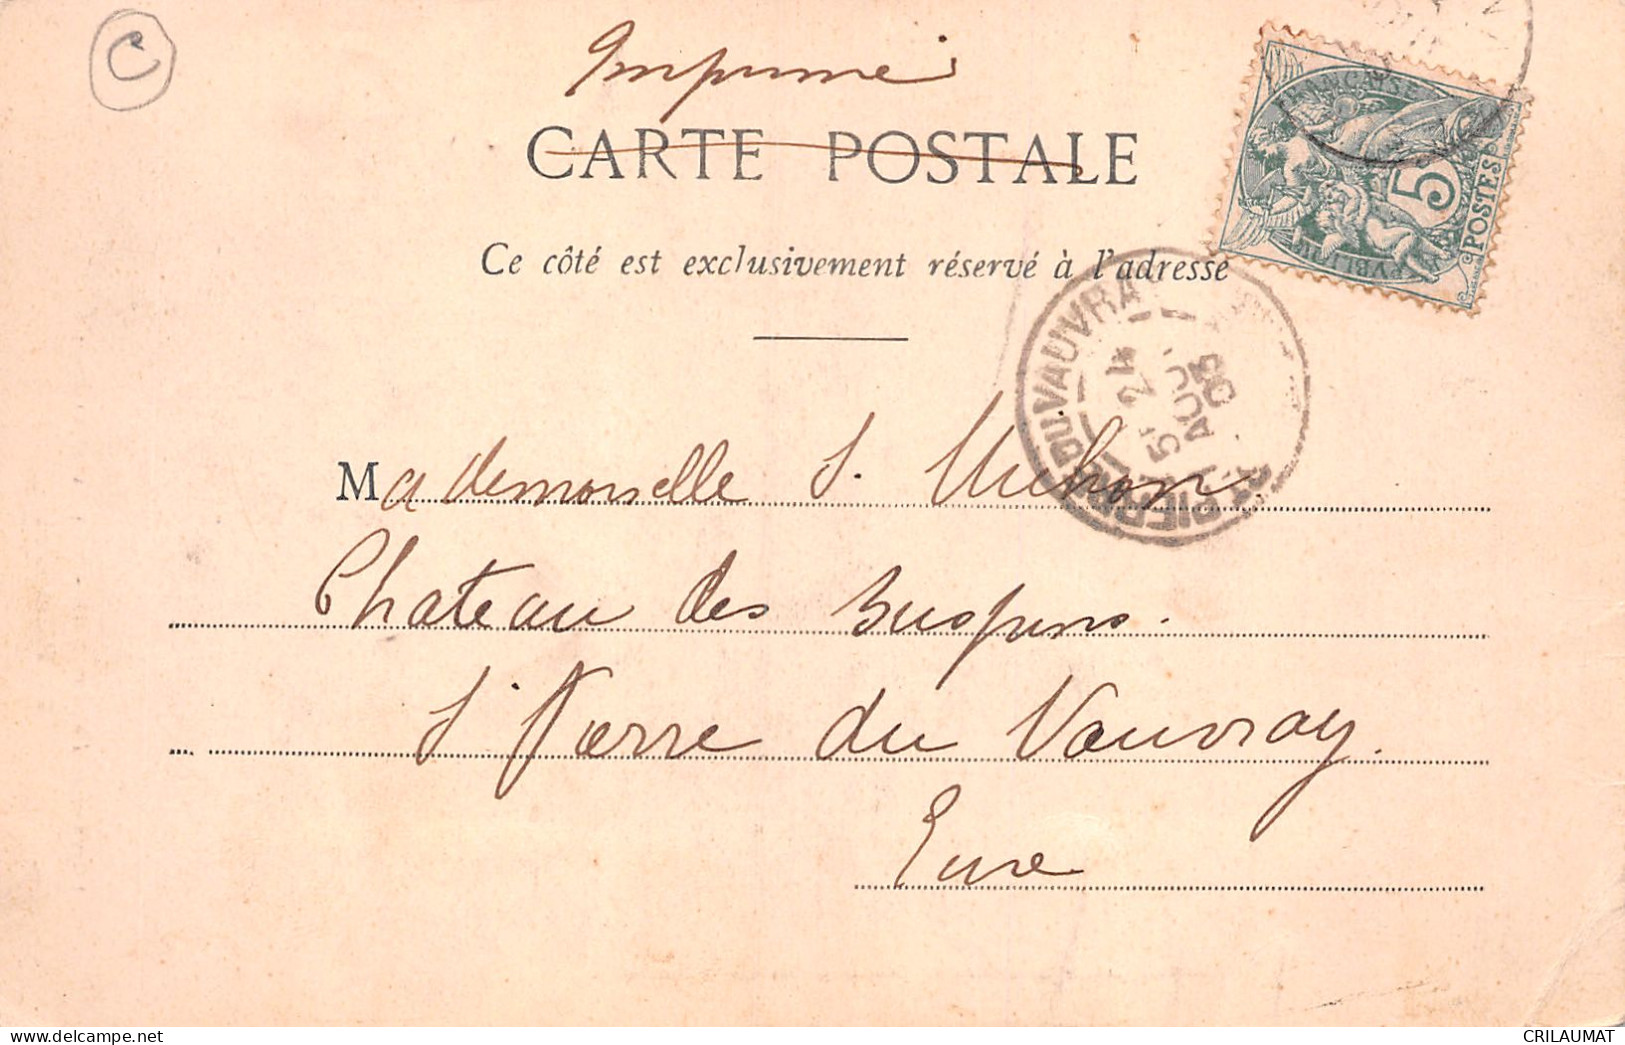 C
Imprimé
CARTE POSTALE
Ce côté est exclusivement réservé à l'adresse
RÉPUBLIQUE FRANÇAISE
5
POSTES
ST PIERRE DU VAUVRAY
5E 24
AOUT
03
Mademoiselle S. Michon
Chateau des
St Pierre du Vauvray.
Eure
CRILAUMAT